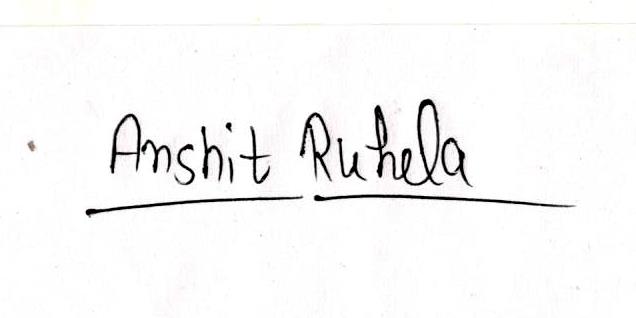 Anshit Ruhela